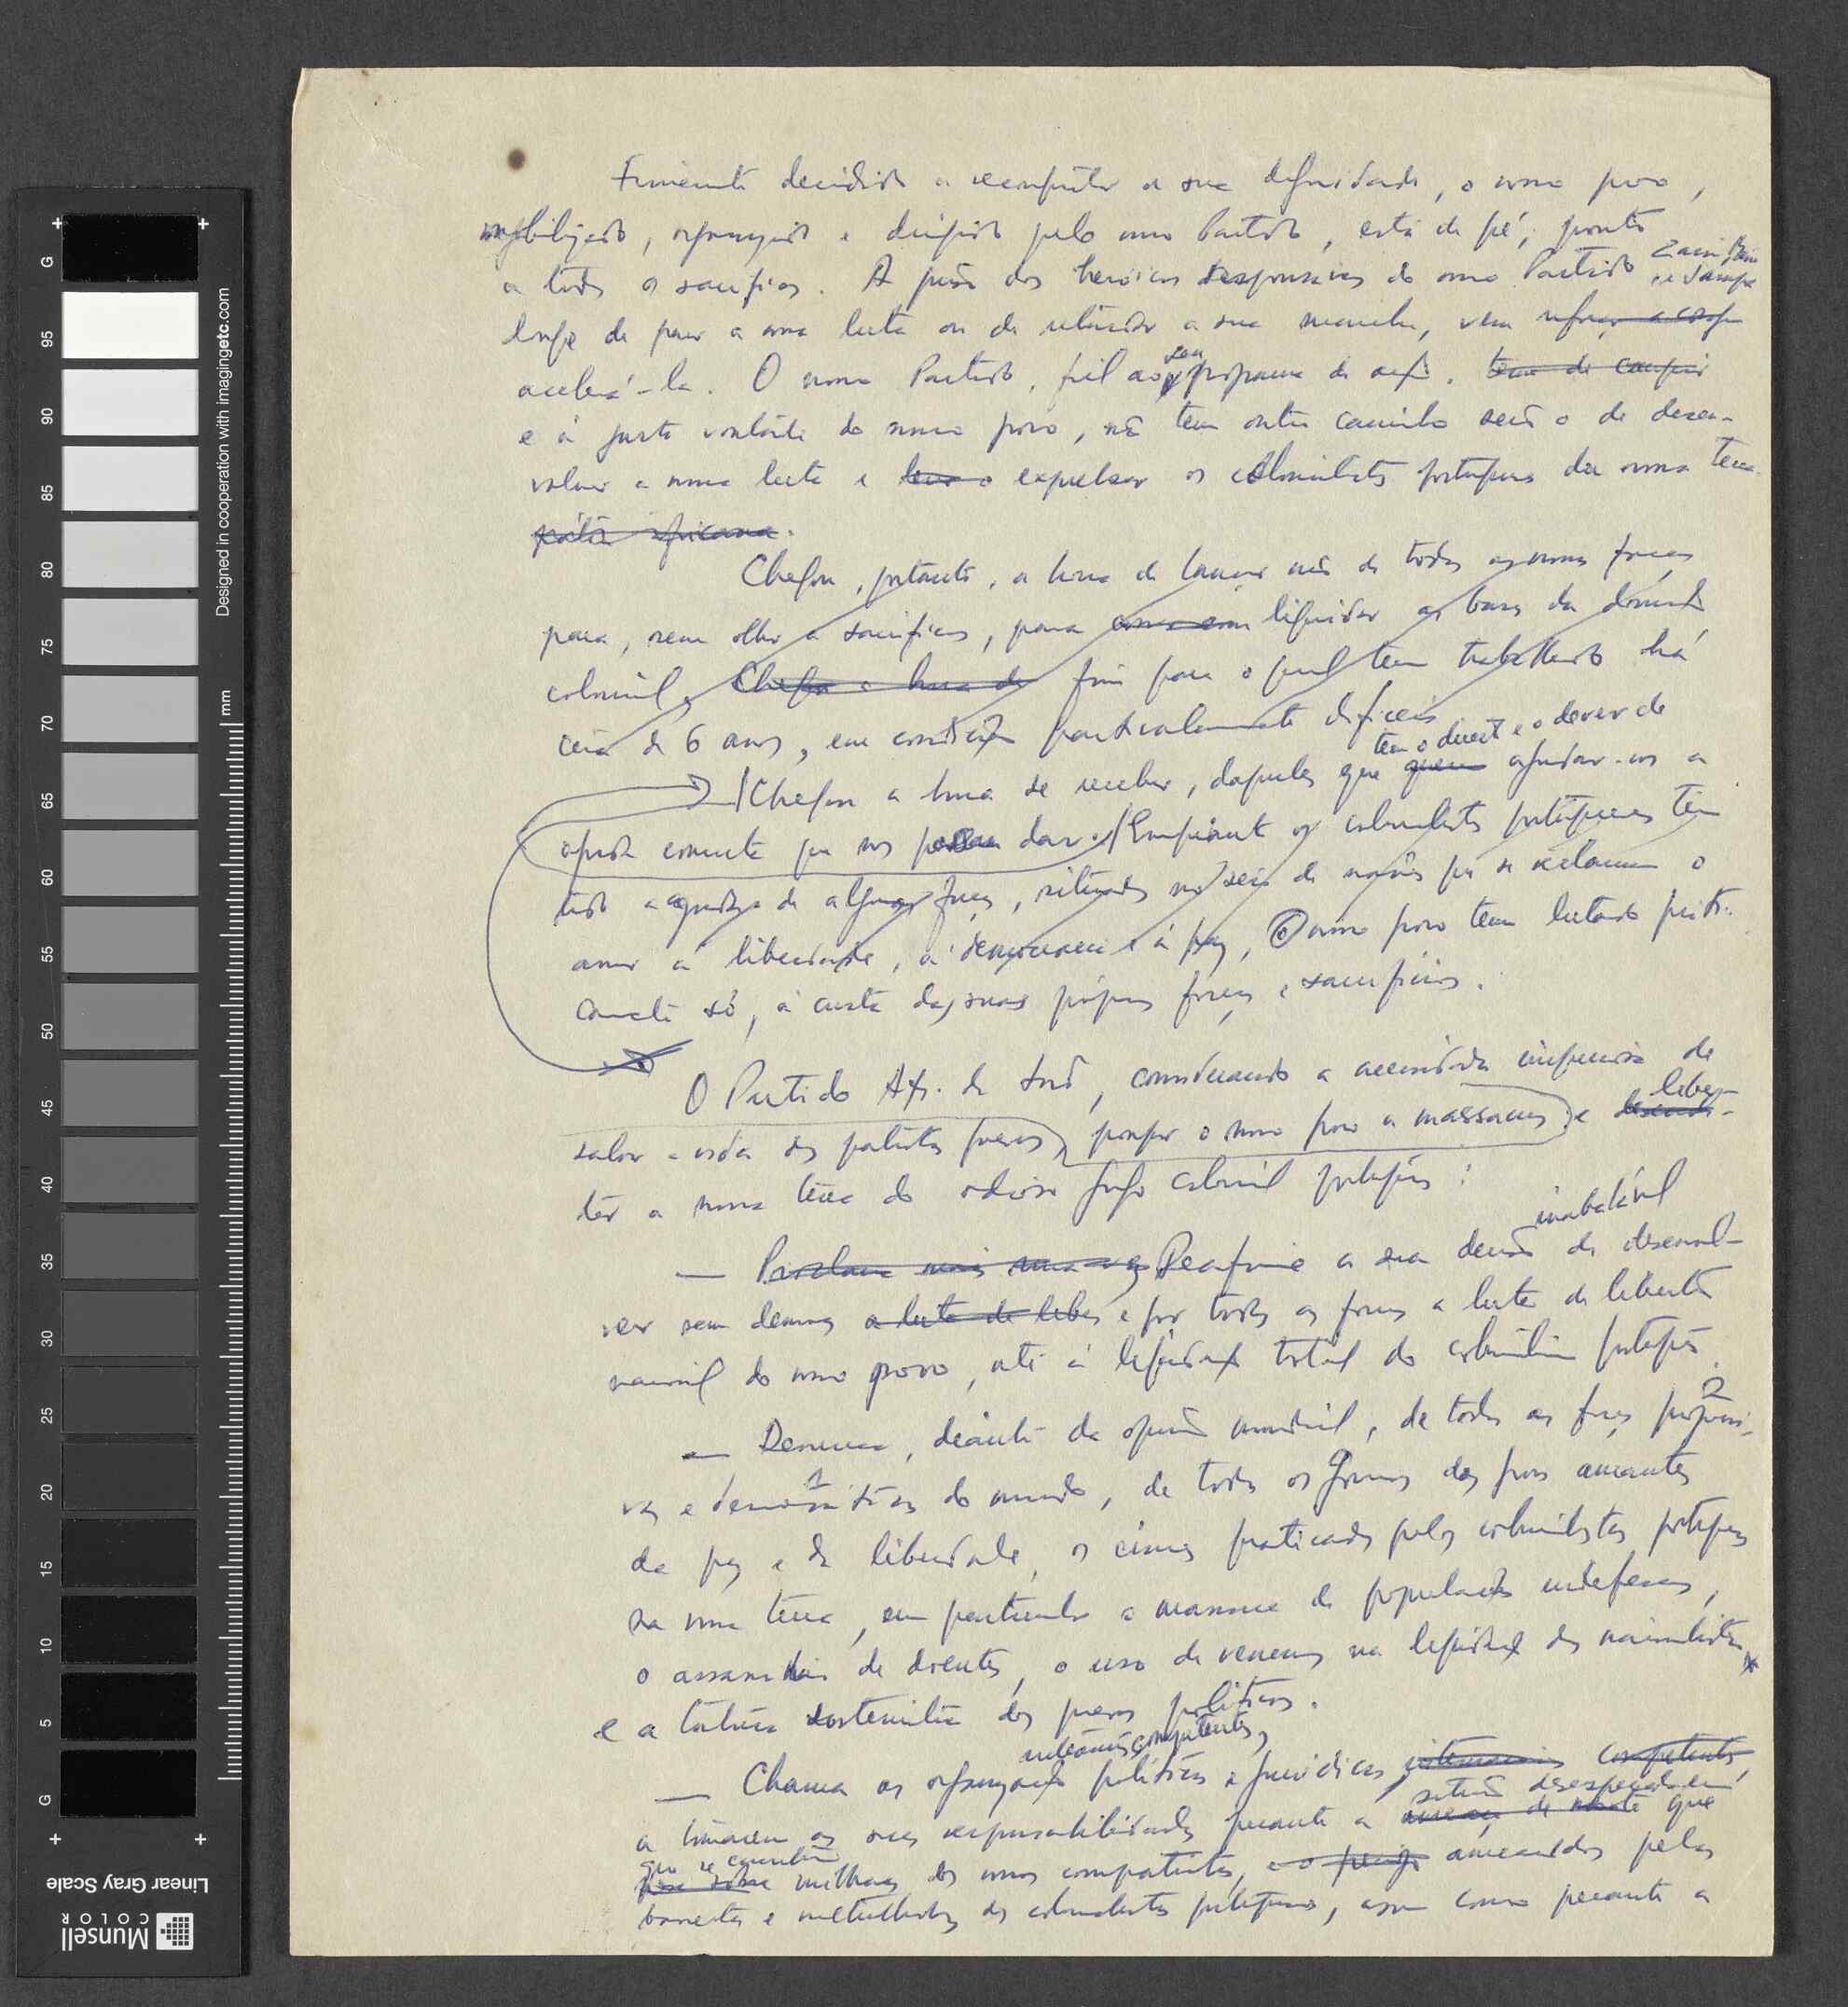 Firmemente decidido a reconquistar a sua dignidade, o nosso povo,
mobilizado, organizado e dirigido pelo nosso Partido, está de pé, pronto
a todos os sacrifícios. A prisão dos heróicos responsáveis do nosso Partido
longe de parar a nossa luta ou de retardar a sua marcha, vem
acelerá-la. O nosso Partido, fiel ao seu programa de acção, tem de cumprir
e à justa vontade do nosso povo, não tem outro caminho senão o de desen-
volver a nossa luta e expulsar os colonialistas portugueses da nossa terra
pátria africana.
Chegou, portanto, a hora de lançar mão de todas as nossas forças
para, sem olhar a sacrifícios, para liquidar as bases da dominação
colonial, Chegou a hora de fim para o qual tem trabalhado há
cerca de 6 anos, em condições particularmente difíceis
tem o direito e o dever de
Chegou a hora de receber, daqueles que querem ajudar-nos a
ajuda concreta que nos possam dar. Enquanto os colonialistas portugueses têm
tido a ajuda de algumas forças, situadas no seio de nações que se reclamam o
amor à liberdade, à democracia e à paz, O nosso povo tem lutado prati-
camente só, à custa das suas próprias forças e sacrifícios.
O Partido Afr. da Ind, considerando a necessidade imperiosa de
liber-
salvar a vida dos patriotas presos, poupar o nosso povo a massacres, e
tar a nossa terra do odioso jugo colonial português:
inabalável
— Proclama mais uma vez Reafirma a sua decisão de desenvol-
ver sem demora a luta de liber e por todas as formas a luta de libertação
nacional do nosso povo, até à liquidação total do colonialismo português.
2
— Denuncia, diante da opinião mundial, de todas as forças progressi-
1
vas e democráticas do mundo, de todos os Governos dos povos amantes
da paz e da liberdade, os crimes praticados pelos colonialistas portugueses
na nossa terra, em particular o massacre de populações indefesas,
o assassínio de doentes, o uso de venenos na liquidação dos nacionalistas
e a tortura dos presos políticos.
internacionais competentes,
— Chama as organizações políticas e jurídicas internacionais competentes,
situação desesperada em
a tomarem as suas responsabilidades perante a ameaça de morte que
que se encontram
pesa sobre milhares dos nossos compatriotas, e o perigo ameaçados pelas
baionetas e metralhadoras dos colonialistas portugueses, assim como perante a
Designed in cooperation with imagingetc.com
mm
G
95
90
85
80
75
70
65
60
55
50
45
40
35
30
25
20
15
10
5
G
Linear Gray Scale
Munsell
COLOR